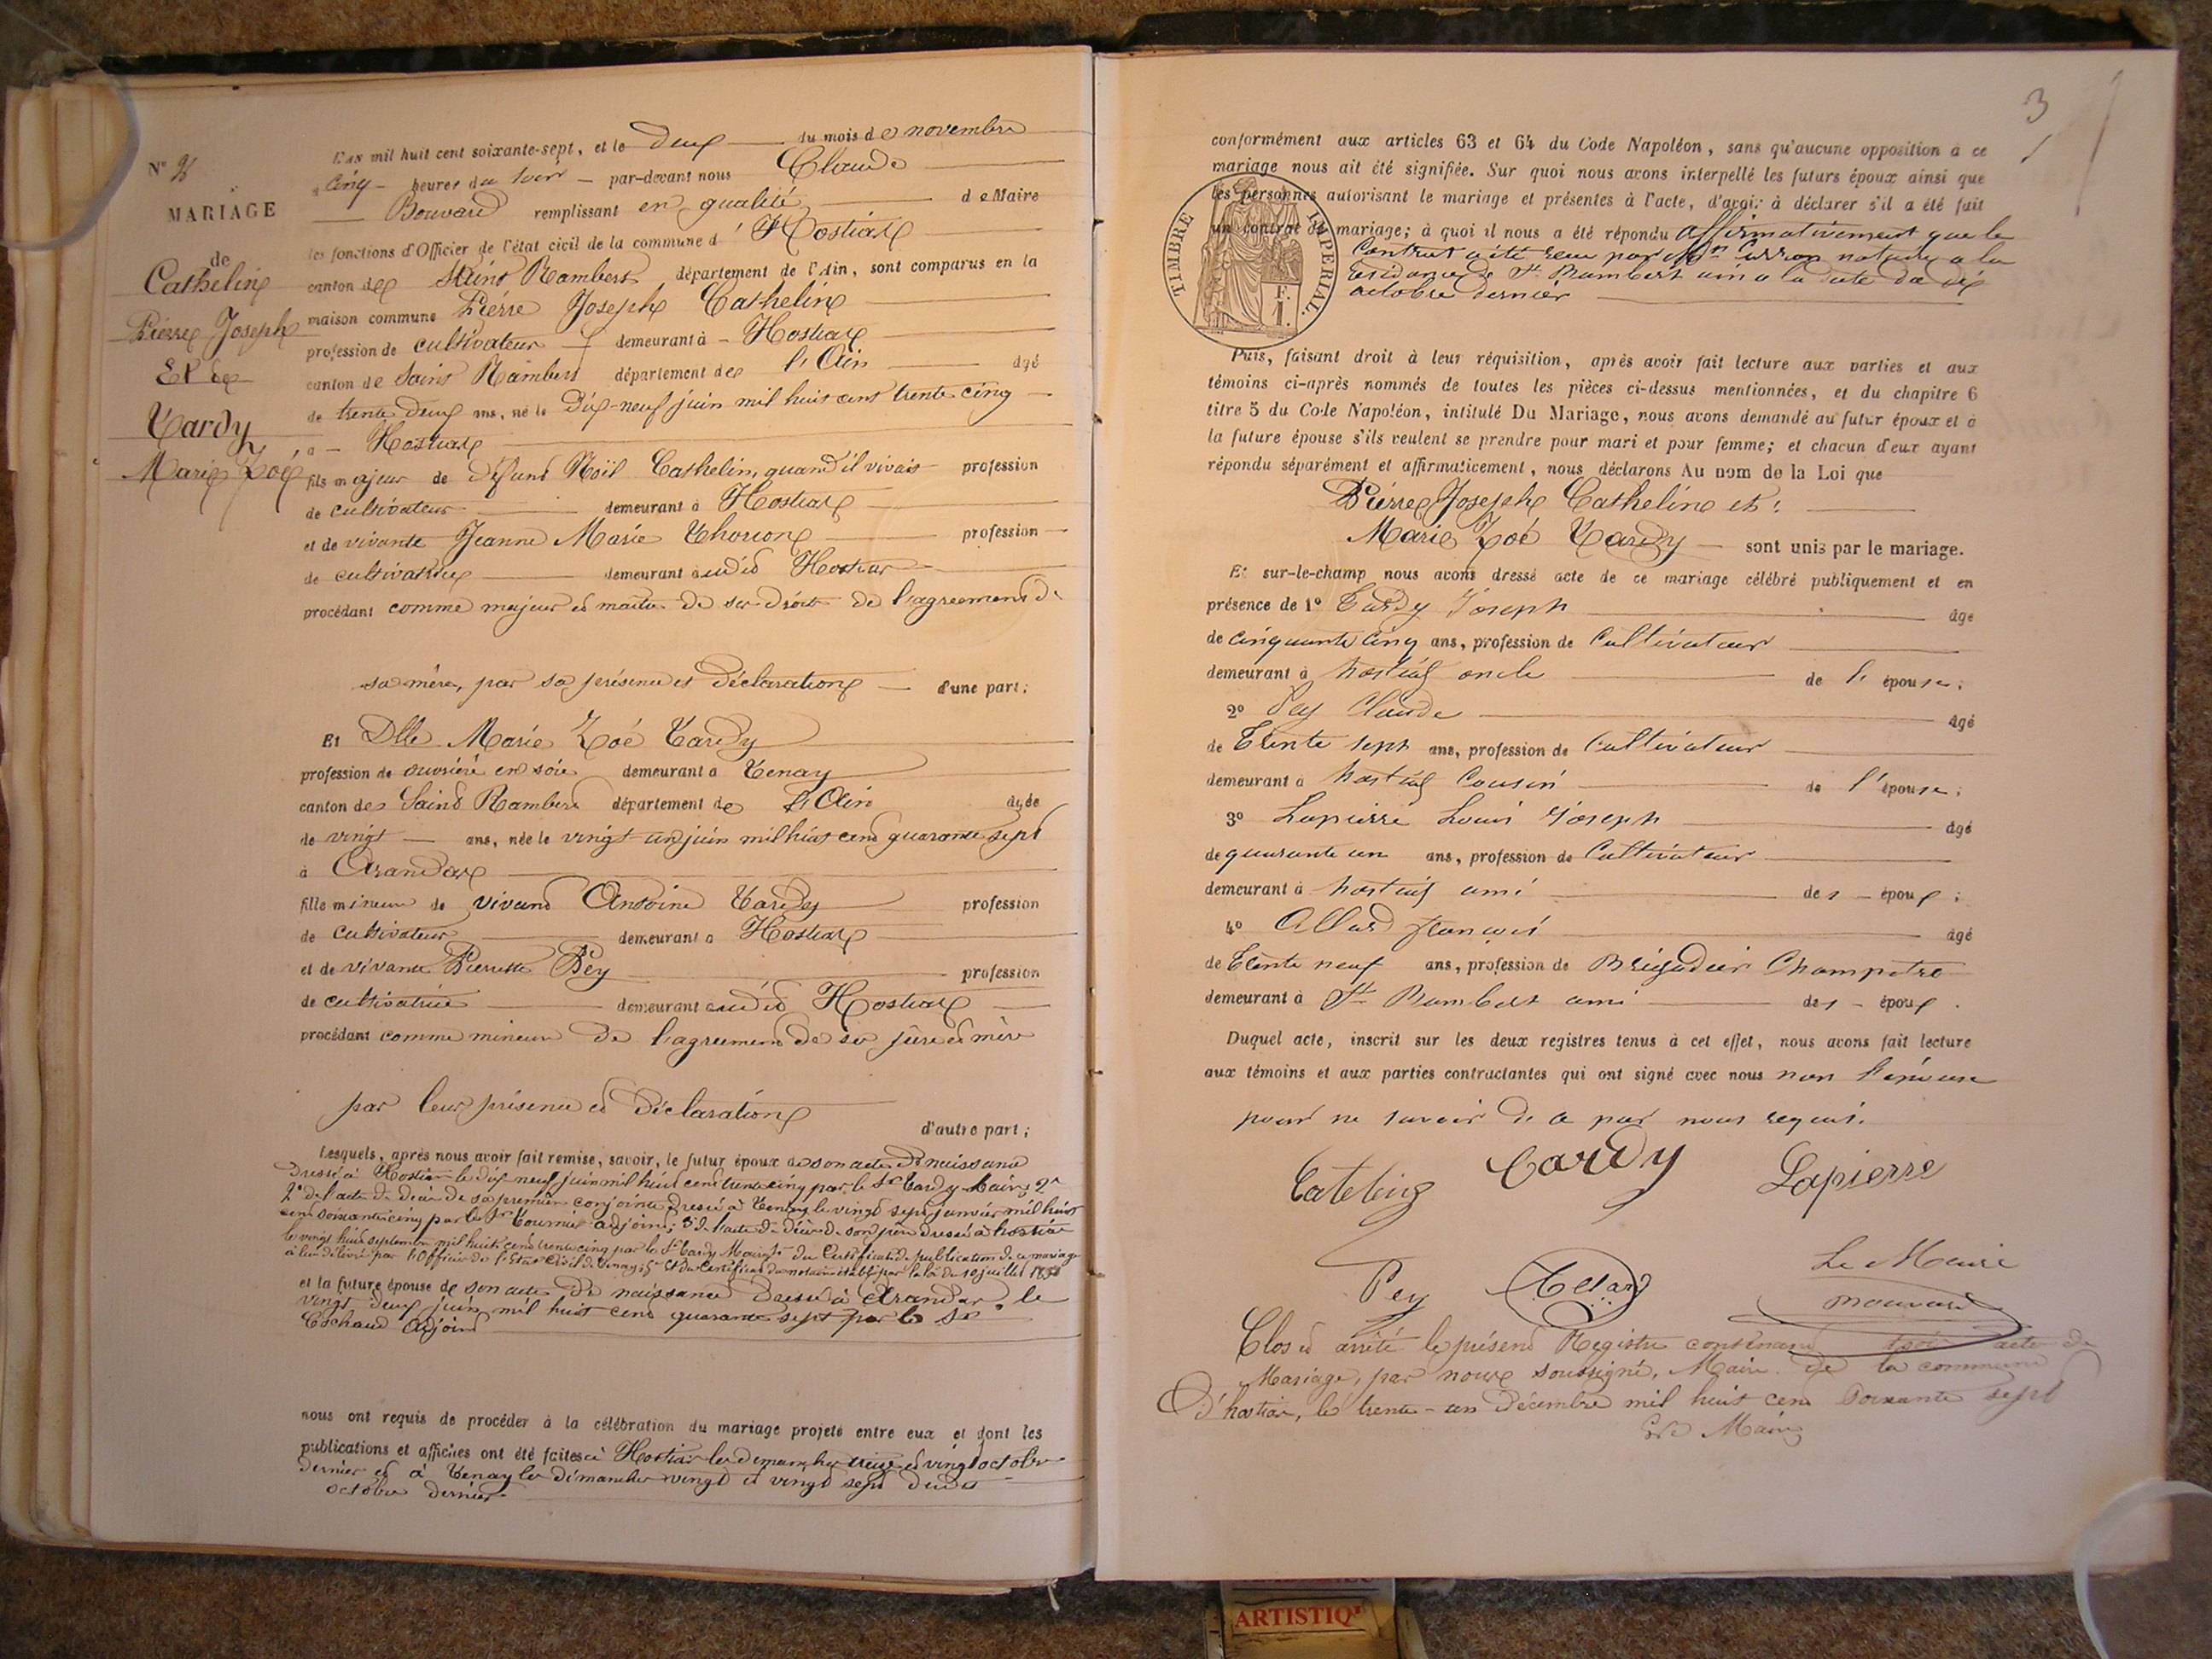 N° 
MARIAGE
de
Cathelin
Pierre Joseph
Et de
Tardy
Marie Zoé
L'an mil huit cent soixante-sept, et le deux du mois de novembre
à cinq heures du soir par-devant nous Claude
Bouvard remplissant en qualité de Maire
les fonctions d'Officier de l'état civil de la commune d'Hostiax
canton de Saint Rambert département de l'Ain, sont comparus en la
maison commune Pierre Joseph Cathelin
profession de cultivateur demeurant à Hostiax
canton de Saint Rambert département de l'Ain âgé
de trente deux ans, né le dix-neuf juin mil huit cent trente cinq
à Hostiax
fils majeur de défunt Noël Cathelin, quand il vivait profession
de cultivateur demeurant à Hostiax
et de vivante Jeanne Marie Thorion profession
de cultivatrice demeurant audit Hostiax
procédant comme majeur et maitre de ses droits de l'agrement de
sa mère, par sa présence et déclaration d'une part;
Et Dlle Marie Zoé Tardy
profession de ouvrière en soie demeurant à Tenay
canton de Saint Rambert département de l'Ain âgée
de vingt ans, née le vingt un juin mil huit cent quarante sept
à Arandas
fille mineure de vivant Antoine Tardy profession
de cultivateur demeurant à Hostiax
et de vivante Pierrette Pey profession
de cultivatrice demeurant audit Hostiax
procédant comme mineure de l'agrement de ses père et mère
par leur présence et déclaration
d'autre part;
Lesquels, après nous avoir fait remise, savoir, le futur époux de son acte de naissance
dressé à Hostiax le dix neuf juin mil huit cent trente cinq par le Sr Tardy Maire; 2°
2° de l'acte de décès de sa première conjointe dressé à Tenay le vingt sept janvier mil huit
cent soixante cinq par le Sr Tournier adjoint; 3° de l'acte de décès de son père dressé à hostiax
le vingt huit septembre mil huit cent trente cinq par le Sr Tardy Maire; du Certificat de publication de ce mariage
à lui délivré par l'Officier de l'Etat Civil de Tenay; 5° et du Certificat du notaire établi par la loi du 10 juillet 1850
et la future épouse de son acte de naissance dressé à Arandas le
vingt deux juin mil huit cent quarante sept par le Sr
adjoint
nous ont requis de procéder à la célébration du mariage projeté entre eux et dont les
publications et affiches ont été faites à Hostiax les dimanches treize et vingt octobre
dernier et à Tenay les dimanches vingt et vingt sept dudit
octobre dernier
3
conformément aux articles 63 et 64 du Code Napoléon, sans qu'aucune opposition à ce
mariage nous ait été signifiée. Sur quoi nous avons interpellé les futurs époux ainsi que
les personnes autorisant le mariage et présentes à l'acte, d'avoir à déclarer s'il a été fait
un contrat de mariage; à quoi il nous a été répondu affirmativement que le
Contrat a été reçu par notaire a la
residance de St Rambert ain a la date du dix
octobre dernier
TIMBRE IMPERIAL
1 F.
Puis, faisant droit à leur réquisition, après avoir fait lecture aux parties et aux
témoins ci-après nommés de toutes les pièces ci-dessus mentionnées, et du chapitre 6
titre 5 du Code Napoléon, intitulé Du Mariage, nous avons demandé au futur époux et à
la future épouse s'ils veulent se prendre pour mari et pour femme; et chacun d'eux ayant
répondu séparément et affirmativement, nous déclarons Au nom de la Loi que
Pierre Joseph Cathelin et
Marie Zoé Tardy sont unis par le mariage.
Et sur-le-champ nous avons dressé acte de ce mariage célébré publiquement et en
présence de 1° Tardy Joseph âgé
de cinquante cinq ans, profession de Cultivateur
demeurant à hostiax oncle de l'épouse;
2° Pey Claude âgé
de Trente sept ans, profession de Cultivateur
demeurant à hostiax Cousin de l'épouse;
3° Lapierre Louis Joseph âgé
de quarante un ans, profession de Cultivateur
demeurant à hostiax ami des époux;
4° Allard françois âgé
de Trente neuf ans, profession de Brigadier Champetre
demeurant à St Rambert ami des époux.
Duquel acte, inscrit sur les deux registres tenus à cet effet, nous avons fait lecture
aux témoins et aux parties contractantes qui ont signé avec nous non l'épouse
pour ne savoir de ce par nous requis.
Catelin Tardy Lapierre
Pey Allard Le Maire
Bouvard
Clos et arrêté le présent Registre contenant trois acte de
Mariage, par nous soussigné, Maire de la commune
D'hostiax, le trente-un Décembre mil huit cent soixante sept
Le Maire
ARTISTIQ